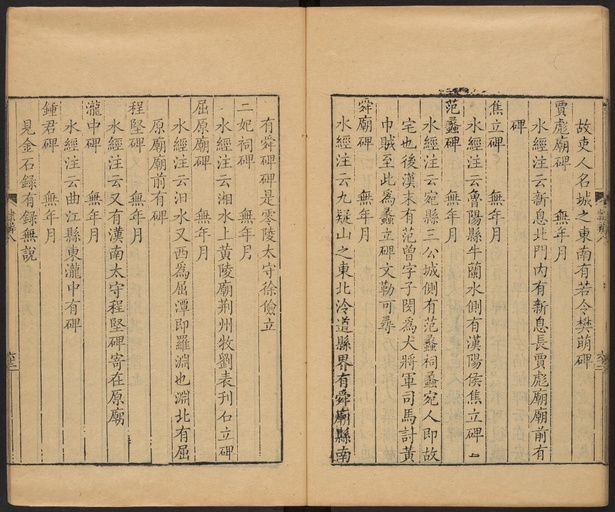 故吏人名城之東南有若令樊萌碑
賈彪廟碑 無年月
水經注云新息北門內有新息長賈彪廟廟前有
碑
焦立碑 無年月
水經注云魯陽縣牛蘭水側有漢陽侯焦立碑
范蠡碑 無年月
水經注云宛縣三公城側有范蠡祠蠡宛人即故
宅也後漢末有范曾字子閔為大將軍司馬討黃
巾賊至此為蠡立碑文勒可尋
舜廟碑 無年月
水經注云九疑山之東北泠道縣界有舜廟縣南
有舜碑碑是零陵太守徐儉立
二妃祠碑 無年月
水經注云湘水上黃陵廟荆州牧劉表刊石立碑
屈原廟碑 無年月
水經注云汨水又西為屈潭即羅淵也淵北有屈
原廟廟前有碑
程堅碑 無年月
水經注云又有漢南太守程堅碑寄在原廟
瀧中碑 無年月
水經注云曲江縣東瀧中有碑
鍾君碑 無年月
見金石錄有錄無說